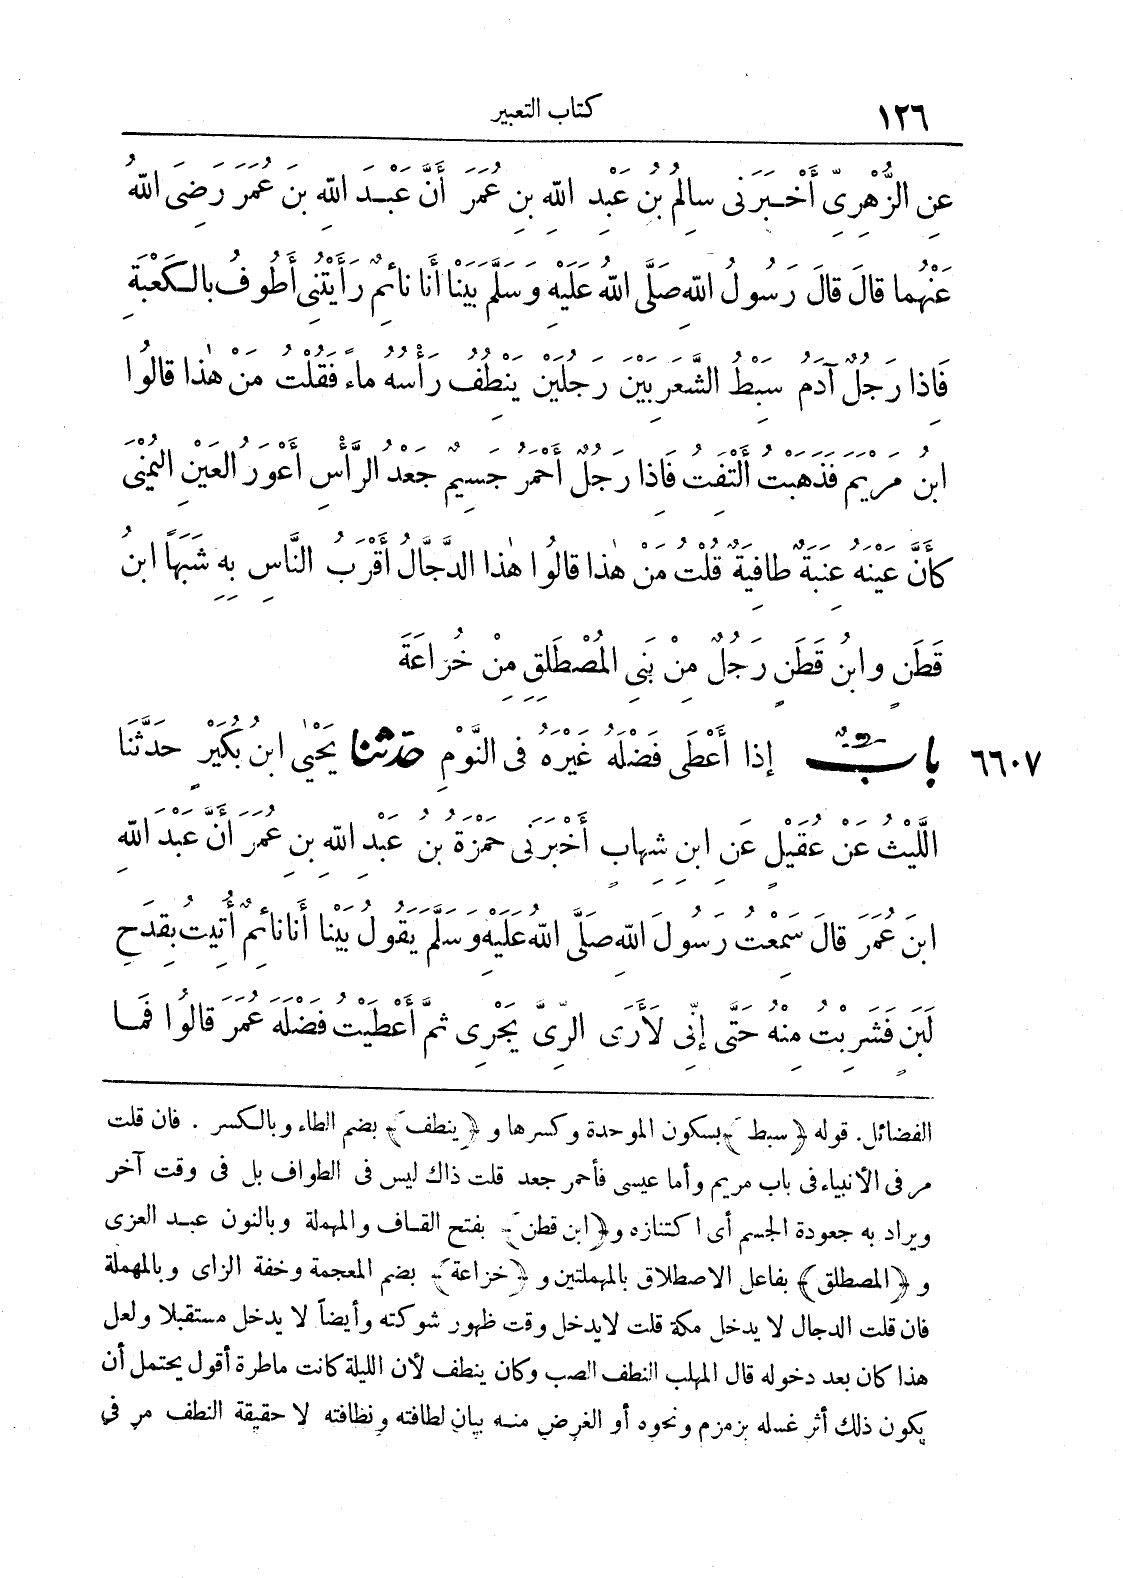 ١٢٦ كتاب التعبير
عَنِ الزُّهْرِىِّ أَخْبَرَنِى سالِمُ بْنُ عَبْدِ اللهِ بنِ عُمَرَ أَنَّ عَبْدَ اللهِ بنَ عُمَرَ رَضِىَ اللهُ
عَنْهُما قالَ قالَ رَسُولُ اللهِ صَلَّى اللهُ عَلَيْهِ وَسَلَّمَ بَيْنَا أَنا نائِمٌ رَأَيْتُنِى أَطُوفُ بالكَعْبَةِ
فَاِذا رَجُلٌ آدَمُ سَبْطُ الشَّعَرِ بَيْنَ رَجُلَيْنِ يَنْطُفُ رَأْسُهُ ماءً فَقُلْتُ مَنْ هٰذا قالُوا
ابنُ مَرْيَمَ فَذَهَبْتُ أَلْتَفِتُ فَاِذا رَجُلٌ أَحْمَرُ جَسِيمٌ جَعْدُ الرَّأْسِ أَعْوَرُ العَيْنِ اليُمْنَى
كأَنَّ عَيْنَهُ عِنَبَةٌ طافِيَةٌ قُلْتُ مَنْ هٰذا قالُوا هٰذا الدَّجَّالُ أَقْرَبُ النَّاسِ بِهِ شَبَهَاً ابنُ
قَطَنٍ وابنُ قَطَنٍ رَجُلٌ مِنْ بَنِى المُصْطَلِقِ مِنْ خُزاعَةَ
٦٦٠٧ بابٌ إذا أَعْطَى فَضْلَهُ غَيْرَهُ فى النَّوْمِ حَدَّثنا يَحْيٰى ابنُ بُكَيْرٍ حَدَّثَنا
اللَّيْثُ عَنْ عُقَيْلٍ عَنِ ابنِ شِهابٍ أَخْبَرَنِى حَمْزَةُ بنُ عَبْدِ اللهِ بنِ عُمَرَ أَنَّ عَبْدَ اللهِ
ابنَ عُمَرَ قالَ سَمِعْتُ رَسُولَ اللهِ صَلَّى اللهُ عَلَيْهِ وَسَلَّمَ يَقُولُ بَيْنا أَنا نائِمٌ أُتِيتُ بِقَدَحِ
لَبَنٍ فَشَرِبْتُ مِنْهُ حَتَّى إنِّى لَأَرَى الرِّىَّ يَجْرِى ثُمَّ أَعْطَيْتُ فَضْلَهُ عُمَرَ قالُوا فَما
الفضائل. قوله ﴿سبط﴾ بسكون الموحدة وكسرها و ﴿ينطف﴾ بضم الطاء وبالكسر . فان قلت
مر فى الأنبياء فى باب مريم وأما عيسى فأحمر جعد قلت ذاك ليس فى الطواف بل فى وقت آخر
ويراد به جعودة الجسم أى اكتنازه و﴿ابن قطن﴾ بفتح القاف والمهملة وبالنون عبد العزى
و ﴿المصطلق﴾ بفاعل الاصطلاق بالمهملتين و ﴿خزاعة﴾ بضم المعجمة وخفة الزاى وبالمهملة
فان قلت الدجال لا يدخل مكة قلت لايدخل وقت ظهور شوكته وأيضاً لا يدخل مستقبلا ولعل
هذا كان بعد دخوله قال المهلب النطف الصب وكان ينطف لأن الليلة كانت ماطرة أقول يحتمل أن
يكون ذلك أثر غسله بزمزم ونحوه أو الغرض منه بيان لطافته ونظافته لا حقيقة النطف مر فى